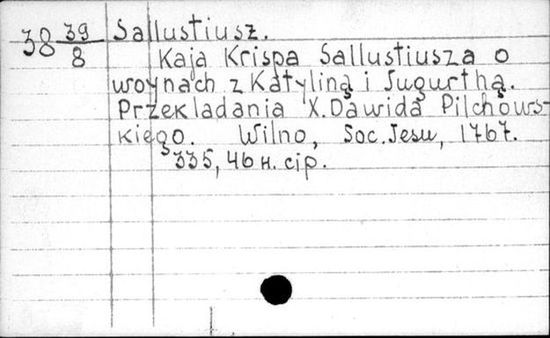 38 39/8 Sallustiusz.
Kaja Krispa Sallustiusza o
woynach z Katyliną i Jugurthą.
Przekladania X. Dawida Pilchows-
kiego. Wilno, Soc. Jesu, 1767.
335, 46 н. стр.